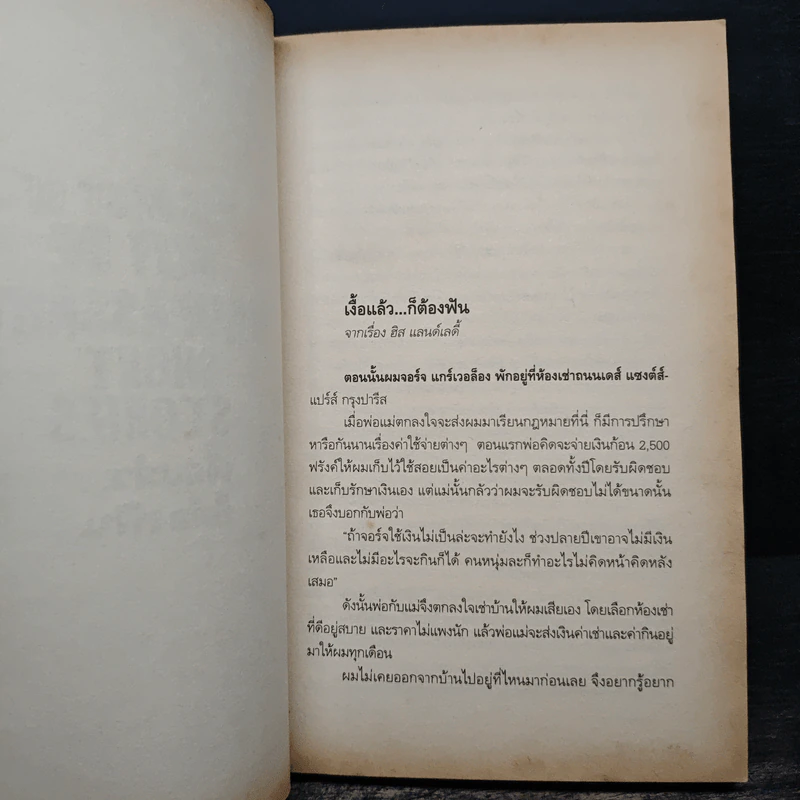 เงื้อแล้ว...ก็ต้องฟัน
จากเรื่อง ฮิส แลนด์เลดี้
ตอนนั้นผมจอร์จ แกร์เวอล็อง พักอยู่ที่ห้องเช่าถนนเดส์ แซงต์ส์-
แปร์ส์ กรุงปารีส
เมื่อพ่อแม่ตกลงใจจะส่งผมมาเรียนกฎหมายที่นี่ ก็มีการปรึกษา
หารือกันนานเรื่องค่าใช้จ่ายต่างๆ ตอนแรกพ่อคิดจะจ่ายเงินก้อน 2,500
ฟรังค์ให้ผมเก็บไว้ใช้สอยเป็นค่าอะไรต่างๆ ตลอดทั้งปีโดยรับผิดชอบ
และเก็บรักษาเงินเอง แต่แม่นั้นกลัวว่าผมจะรับผิดชอบไม่ได้ขนาดนั้น
เธอจึงบอกกับพ่อว่า
"ถ้าจอร์จใช้เงินไม่เป็นล่ะจะทำยังไง ช่วงปลายปีเขาอาจไม่มีเงิน
เหลือและไม่มีอะไรจะกินก็ได้ คนหนุ่มละก็ทำอะไรไม่คิดหน้าคิดหลัง
เสมอ"
ดังนั้นพ่อกับแม่จึงตกลงใจเช่าบ้านให้ผมเสียเอง โดยเลือกห้องเช่า
ที่ดีอยู่สบาย และราคาไม่แพงนัก แล้วพ่อแม่จะส่งเงินค่าเช่าและค่ากินอยู่
มาให้ผมทุกเดือน
ผมไม่เคยออกจากบ้านไปอยู่ที่ไหนมาก่อนเลย จึงอยากรู้อยาก